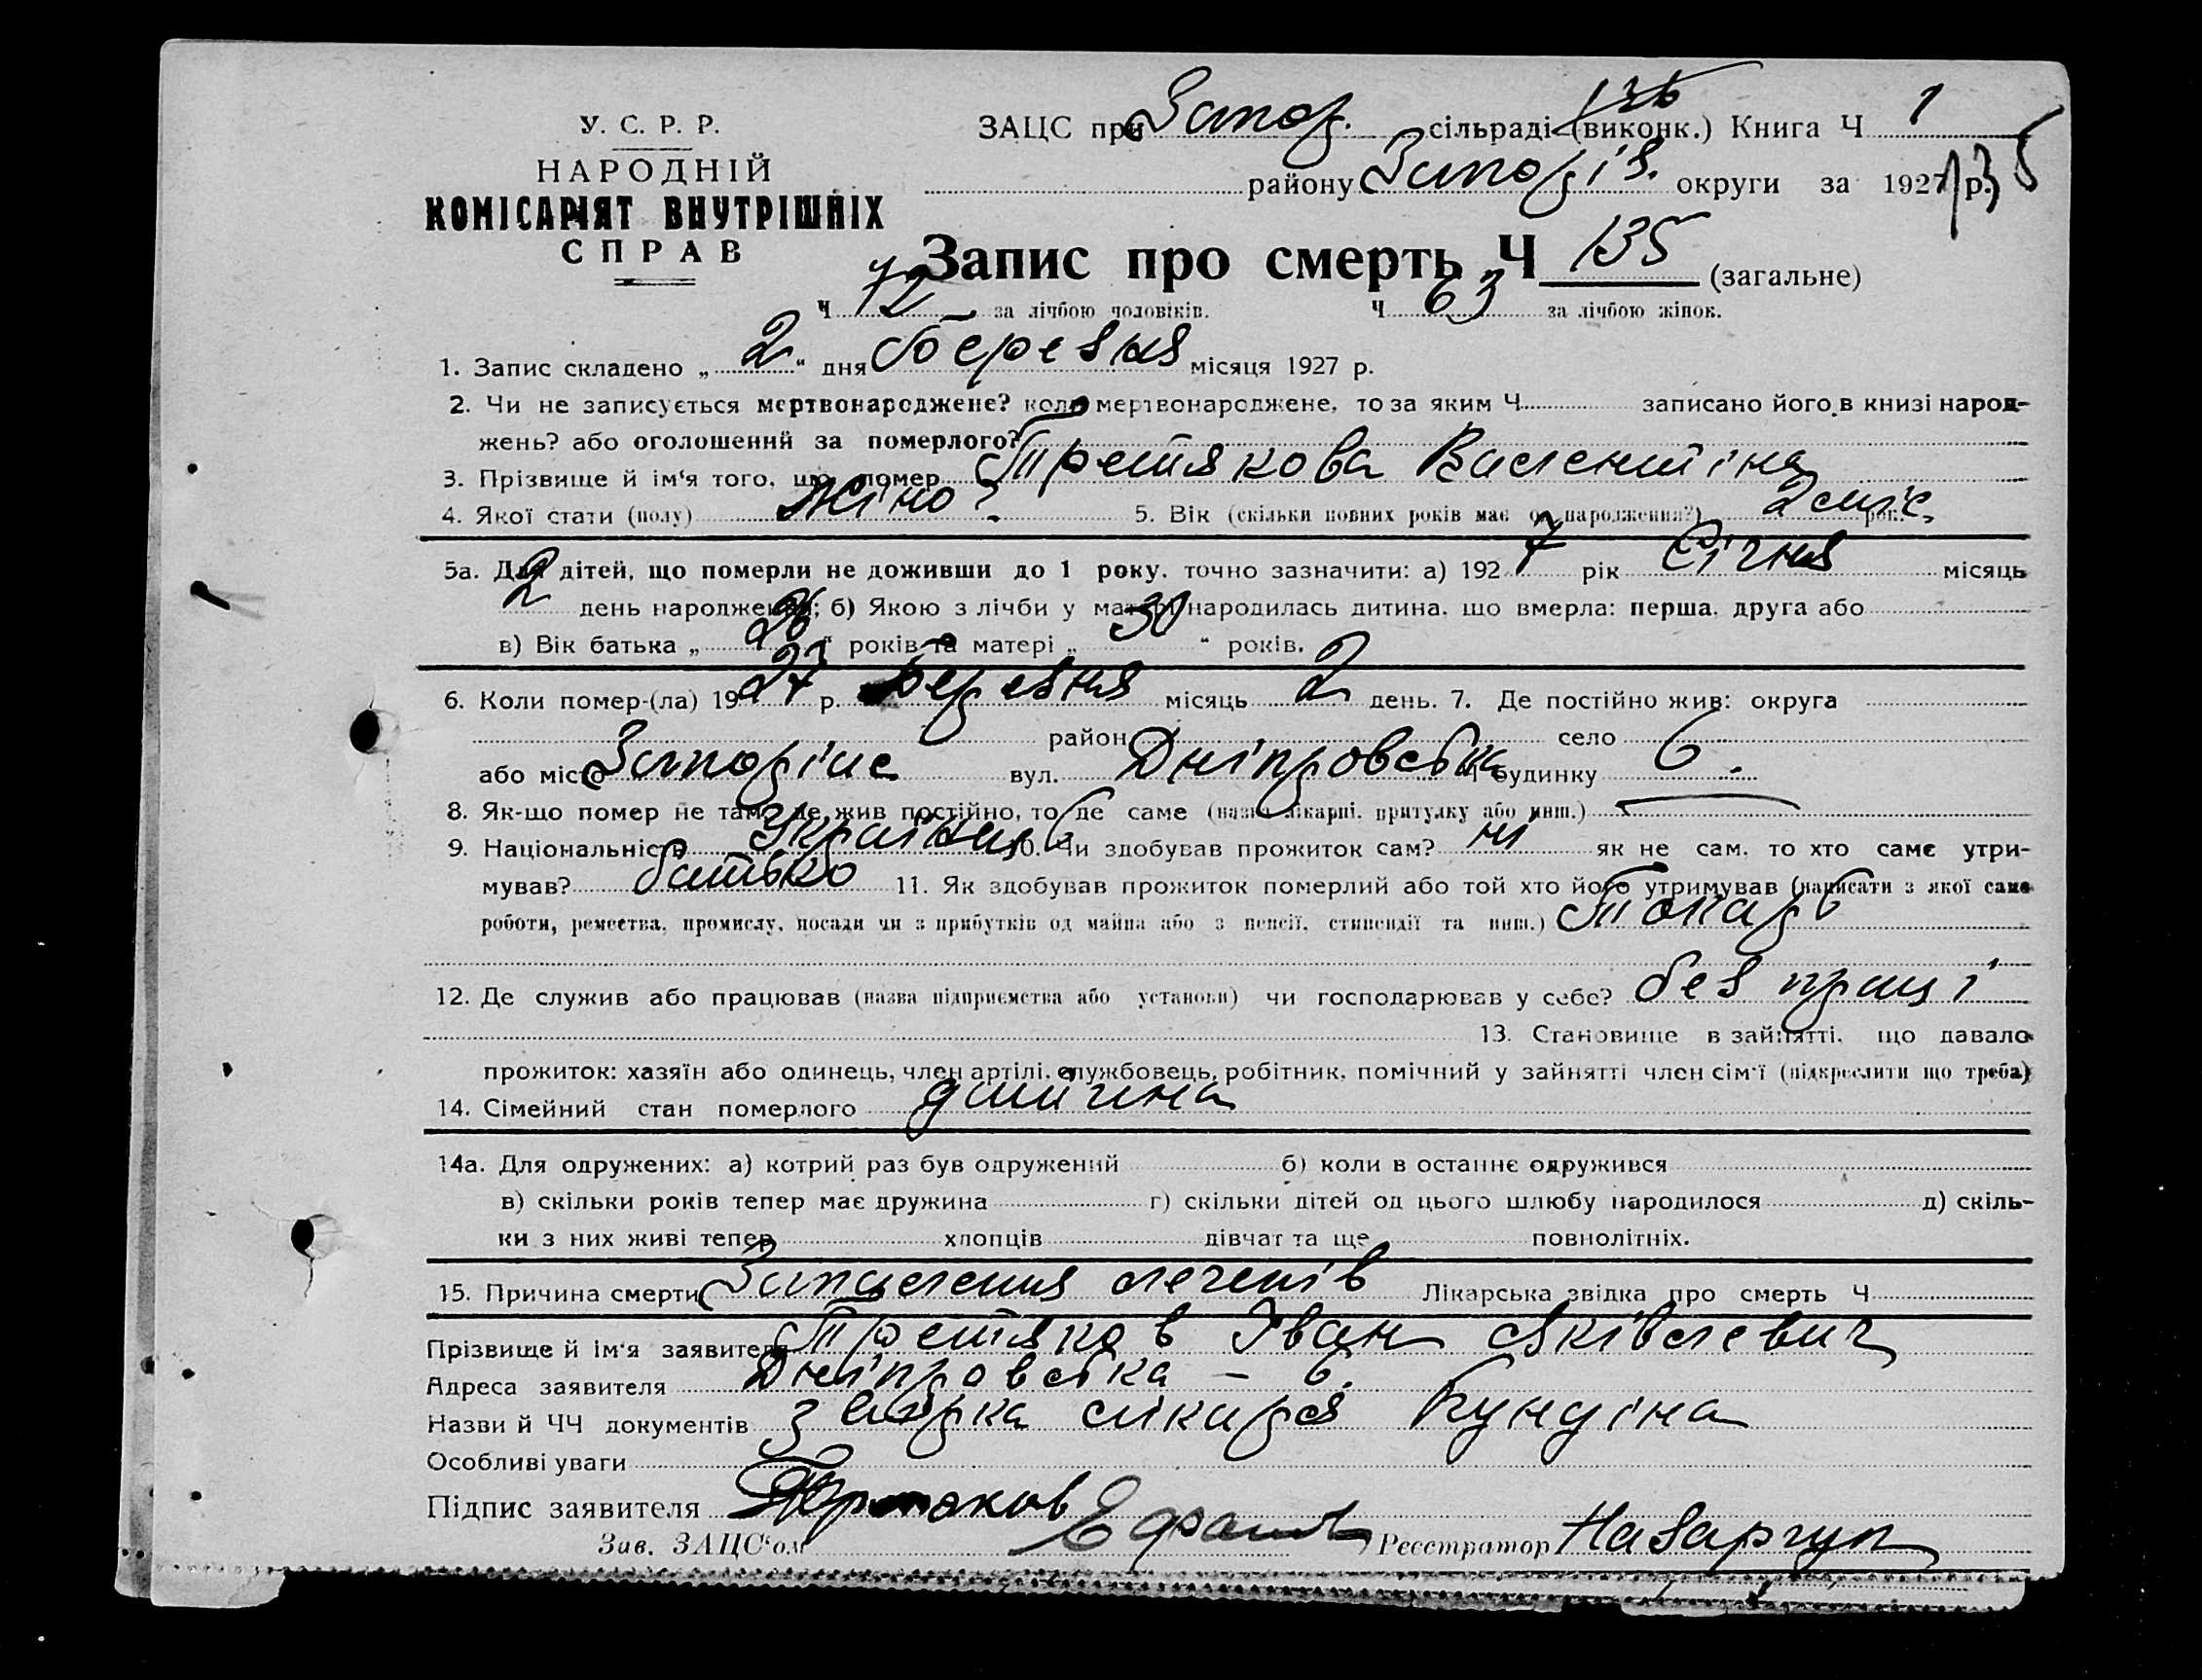 У. С. Р. Р.
НАРОДНІЙ
КОМІСАРІЯТ ВНУТРІШНІХ
СПРАВ
136
ЗАЦС при Запор. сільраді (виконк.) Книга Ч 1
району Запоріз. округи за 1927 р.
135
Запис про смерть Ч 135 (загальне)
Ч 72 за лічбою чоловіків. Ч 63 за лічбою жінок.
1. Запис складено „ 2 “ дня березня місяця 1927 р.
2. Чи не записується мертвонароджене? коли мертвонароджене, то за яким Ч записано його в книзі народ-
жень? або оголошений за померлого?
3. Прізвище й ім‘я того, що помер Третякова Валентіна
4. Якої стати (полу) жіно? 5. Вік (скільки повних років має од народження?) 2 міс. рок.
5а. Для дітей, що померли не доживши до 1 року, точно зазначити: а) 1927 рік Січня місяць
2 день народження; б) Якою з лічби у матері народилась дитина, що вмерла: перша, друга або
в) Вік батька „ 26 “ років та матері „ 30 “ років.
6. Коли помер-(ла) 1927 р. березня місяць 2 день. 7. Де постійно жив: округа
район село
або місто Запоріже вул. Дніпровська Ч будинку 6.
8. Як-що помер не там, де жив постійно, то де саме (назва лікарні, притулку або инш.)
9. Національність Українец 10. Чи здобував прожиток сам? ні як не сам, то хто саме утри-
мував? батько 11. Як здобував прожиток померлий або той хто його утримував (написати з якої саме
роботи, ремества, промислу, посади чи з прибутків од майна або з пенсії, стипендії та инш.) Токарь
12. Де служив або працював (назва підприємства або установи) чи господарював у себе? без праці
13. Становище в зайнятті, що давало
прожиток: хазяїн або одинець, член артілі, службовець, робітник, помічний у зайнятті член сім‘ї (підкреслити що треба)
14. Сімейний стан померлого дитина
14а. Для одружених: а) котрий раз був одружений б) коли в останнє одружився
в) скільки років тепер має дружина г) скільки дітей од цього шлюбу народилося д) скіль-
ки з них живі тепер хлопців дівчат та ще повнолітніх.
15. Причина смерти Запаления легенів Лікарська звідка про смерть Ч
Прізвище й ім‘я заявителя Третяков Іван Яківлевич
Адреса заявителя Дніпровська – 6.
Назви й ЧЧ документів лікаря Кундіна
Особливі уваги
Підпис заявителя Третяков
Зав. ЗАЦС‘ом Реєстратор Назарчук